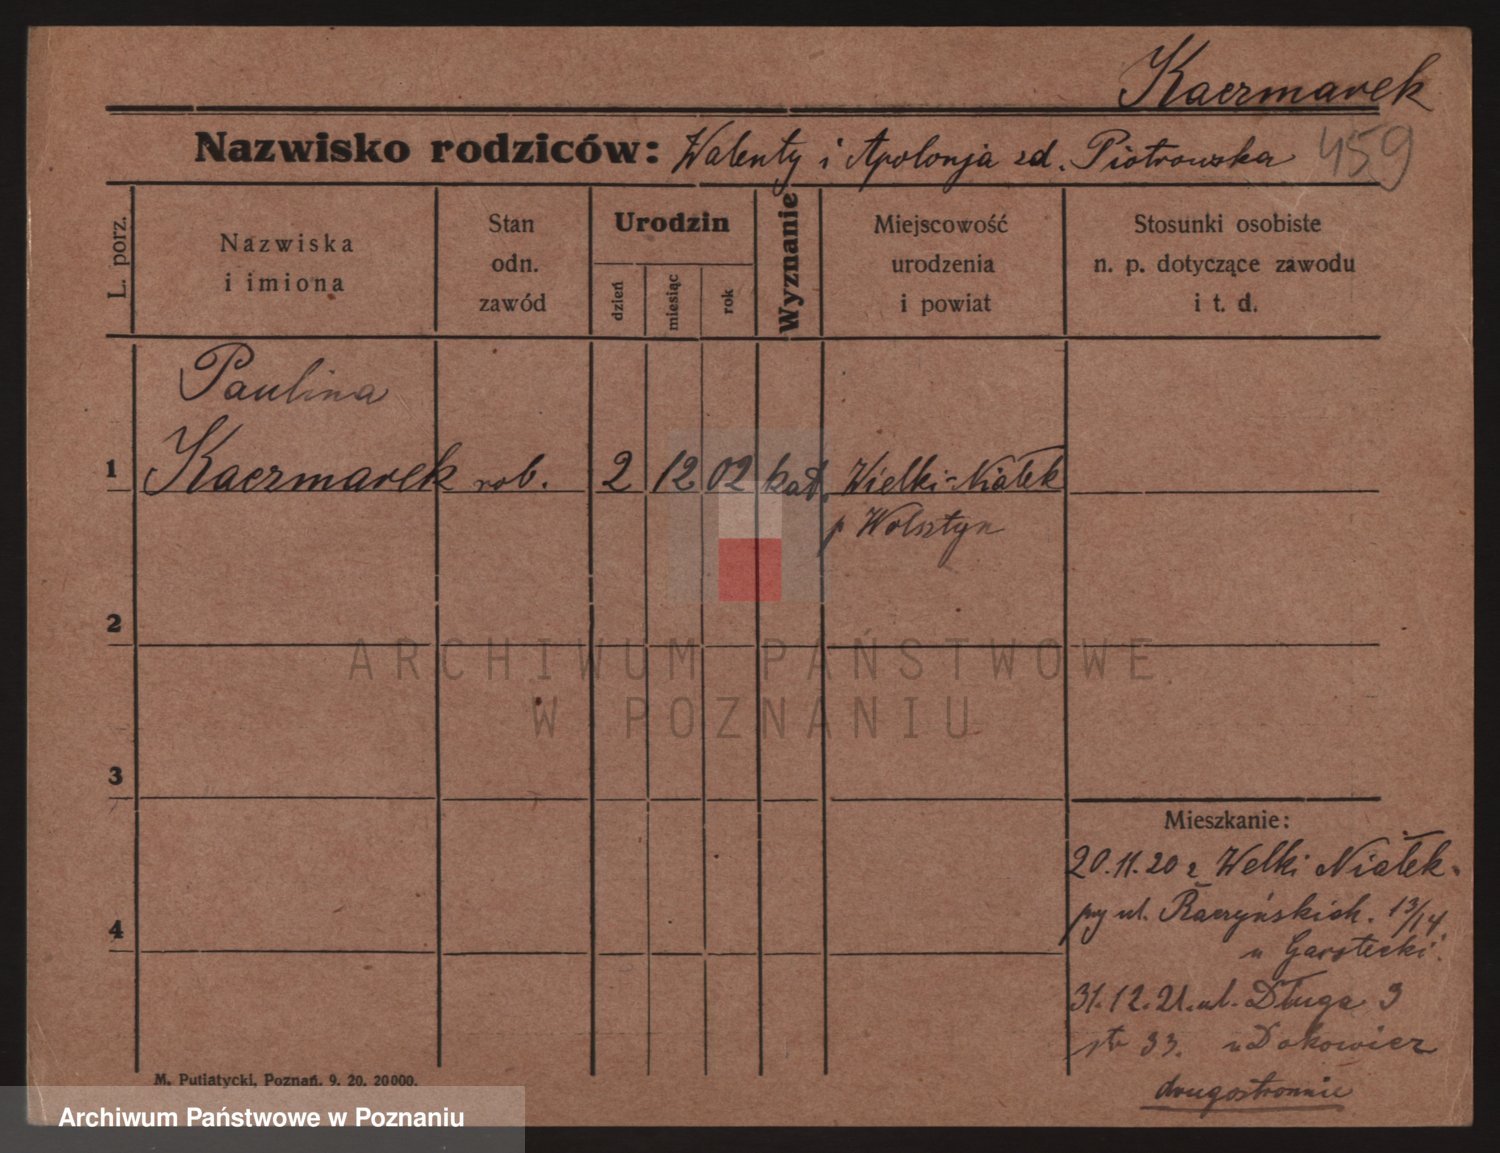 Kaczmarek
Nazwisko rodziców: Walenty i Apolonja zd. Piotrowska 459
L. porz.
Nazwiska i imiona
Stan odn. zawód
Urodzin
dzień
miesiąc
rok
Wyznanie
Miejscowość urodzenia i powiat
Stosunki osobiste n. p. dotyczące zawodu i t. d.
Paulina
1 Kaczmarek rob. 2 12 02 kat. Wielki-Niałek
p Wolsztyn
2
3
4
ARCHIWUM PAŃSTWOWE
W POZNANIU
Mieszkanie:
20.11.20 z Welki Niałek.
ul. Raczyńskich. 13/14
u Garstecki.
31.12.21. ul. Długa 9
33. u
drugostronnie
M. Putiatycki, Poznań. 9. 20. 20000.
Archiwum Państwowe w Poznaniu